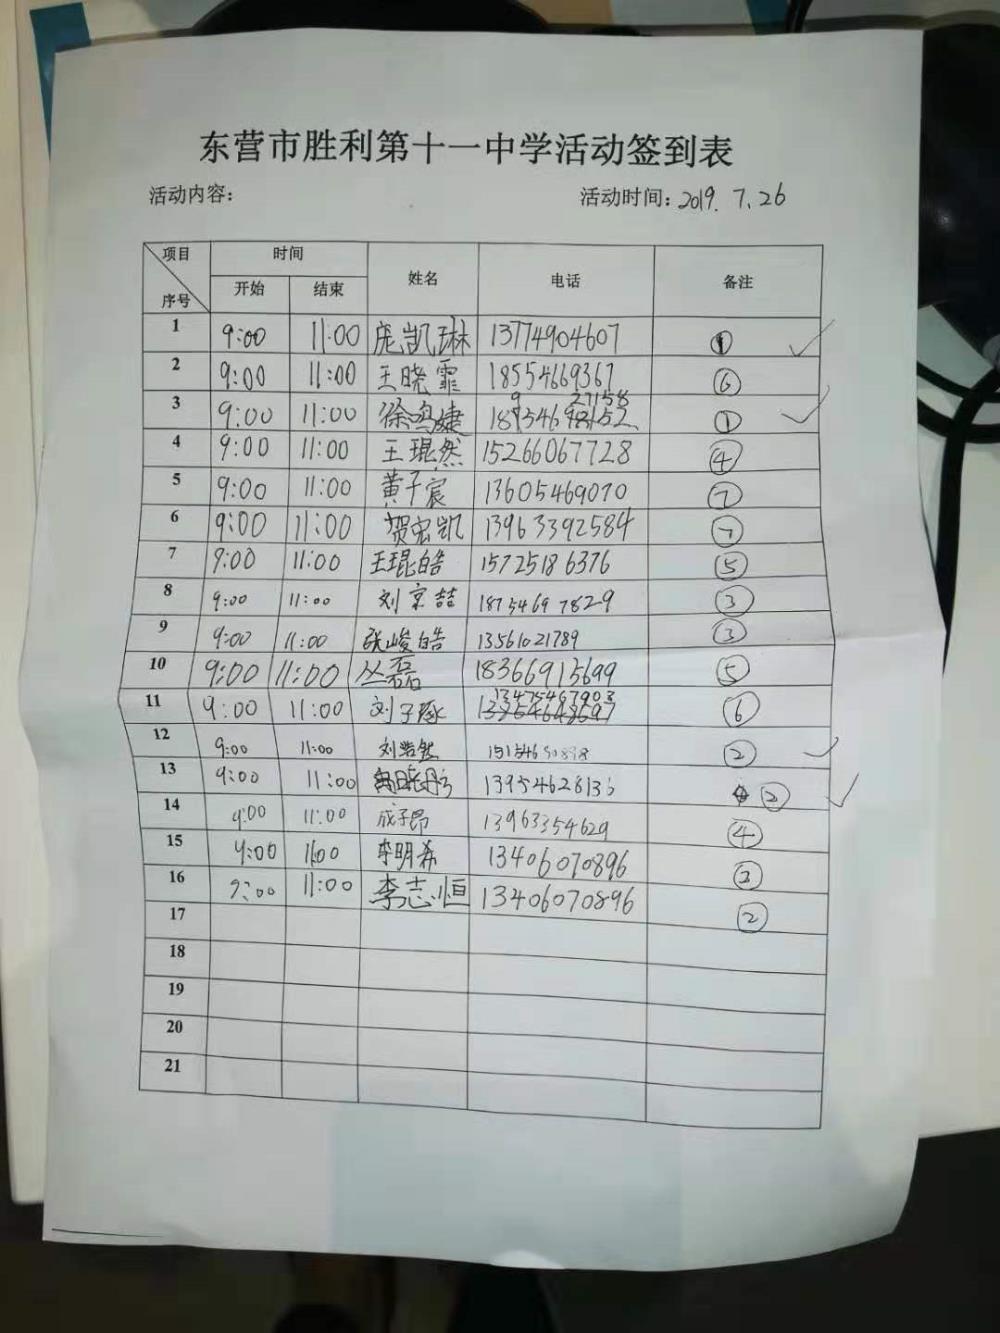 东营市胜利第十一中学活动签到表
活动内容: 活动时间: 2019. 7.26
项目 时间 姓名 电话 备注
序号 开始 结束
1 9:00 11:00 庞凯琳 13774904607 ① ✓
2 9:00 11:00 王晓霏 18554669367 ⑥
3 9:00 11:00 徐鸣婕 ① ✓
4 9:00 11:00 王琨然 15266067728 ④
5 9:00 11:00 黄子宸 13605469070 ⑦
6 9:00 11:00 贺宏凯 13963392584 ⑦
7 9:00 11:00 王琨皓 15725186376 ⑤
8 9:00 11:00 刘京喆 18754697829 ③
9 9:00 11:00 张峻皓 13561021789 ③
10 9:00 11:00 丛磊 18366915699 ⑤
11 9:00 11:00 刘子琢 13475467903 ⑥
12 9:00 11:00 刘浩然 ② ✓
13 9:00 11:00 13954628136 ② ✓
14 9:00 11:00 成子昂 13963354629 ④
15 9:00 11:00 李明希 13406070896 ③
16 9:00 11:00 李志恒 13406070896 ②
17
18
19
20
21